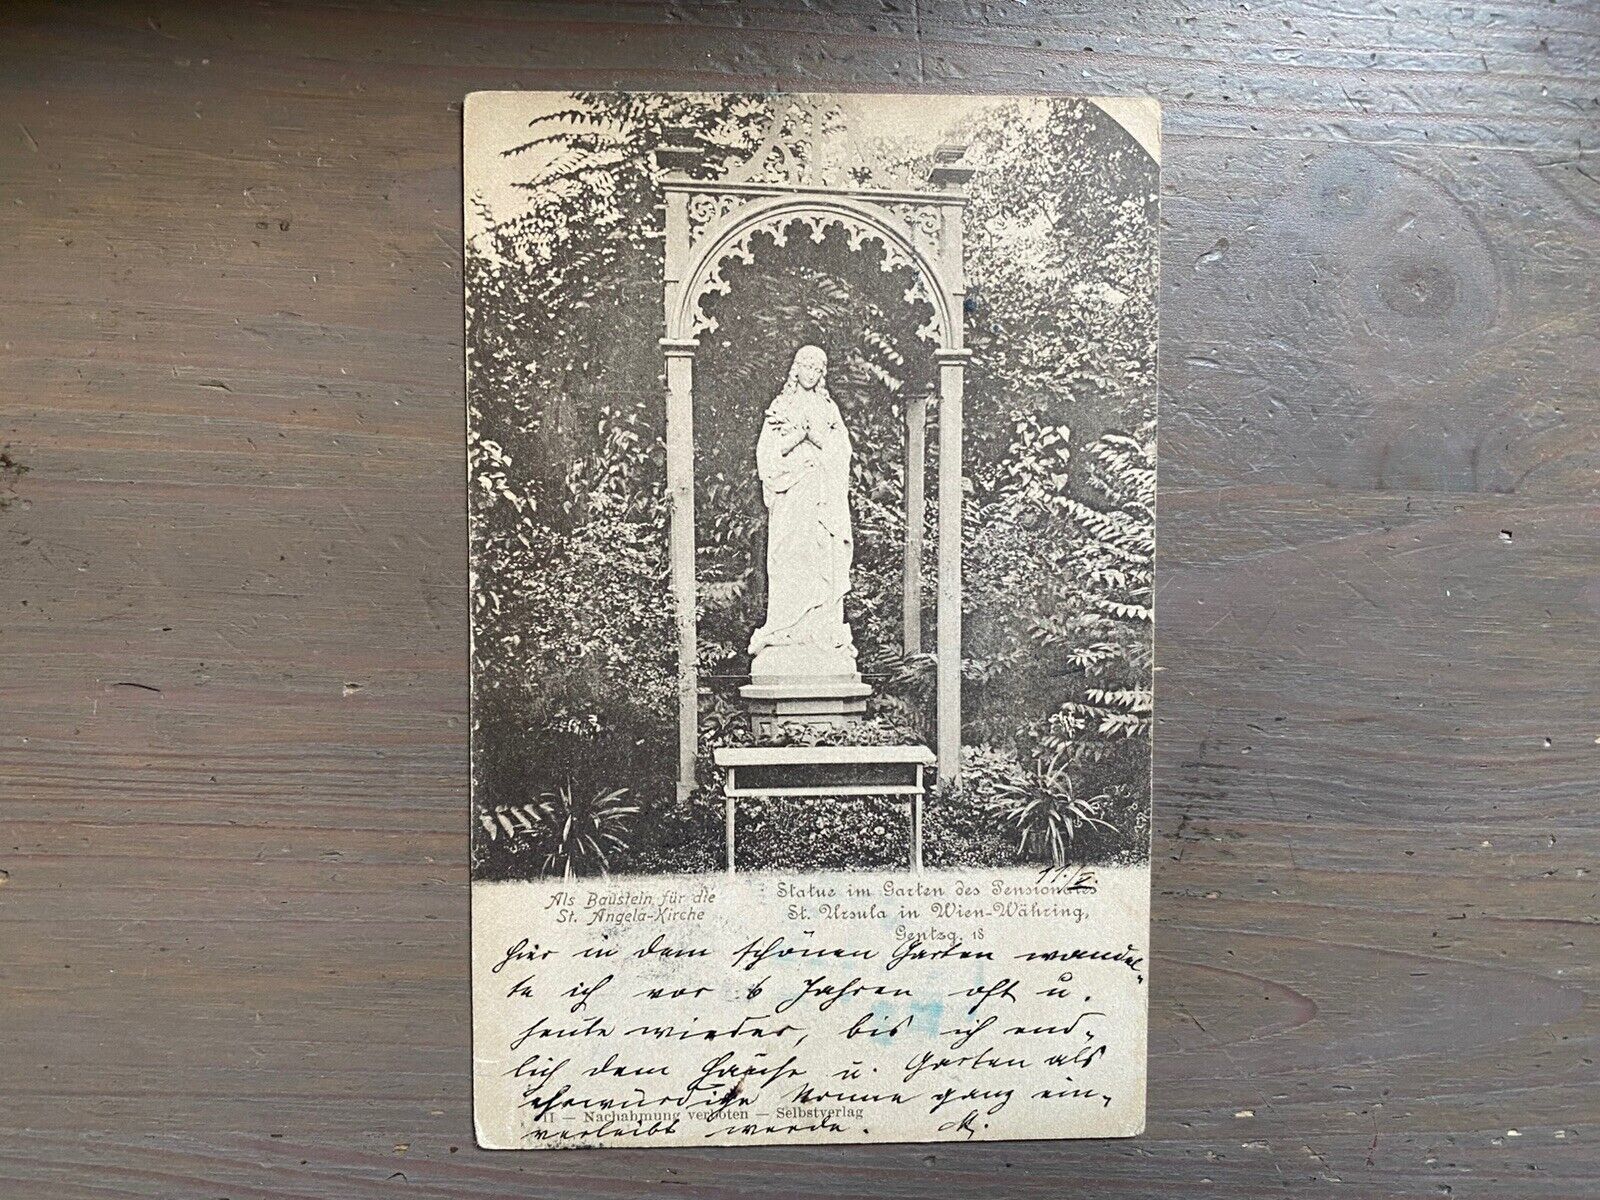 11./V.
Als Baustein für die
St. Angela-Kirche
Statue im Garten des Pensionates
St. Ursula in Wien-Währing,
Gentzg. 18
Hier in dem schönen Garten wandel-
te ich vor 6 Jahren oft u.
heute wieder, bis ich end-
lich dem Hause u. Garten als
ehrwürdige Nonne ganz ein-
11 — Nachahmung verboten — Selbstverlag
verleibt werde. M.